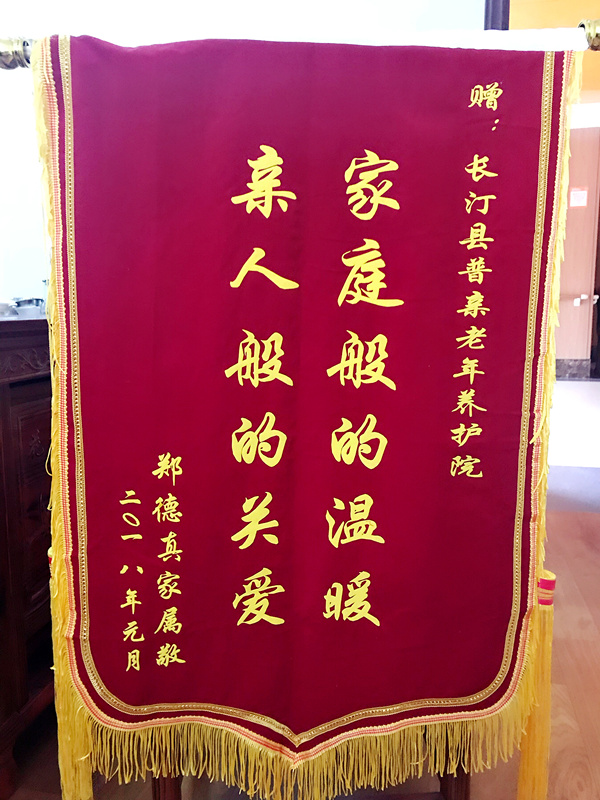 赠：长汀县普亲老年养护院
家庭般的温暖
亲人般的关爱
郑德真家属敬
二〇一八年元月